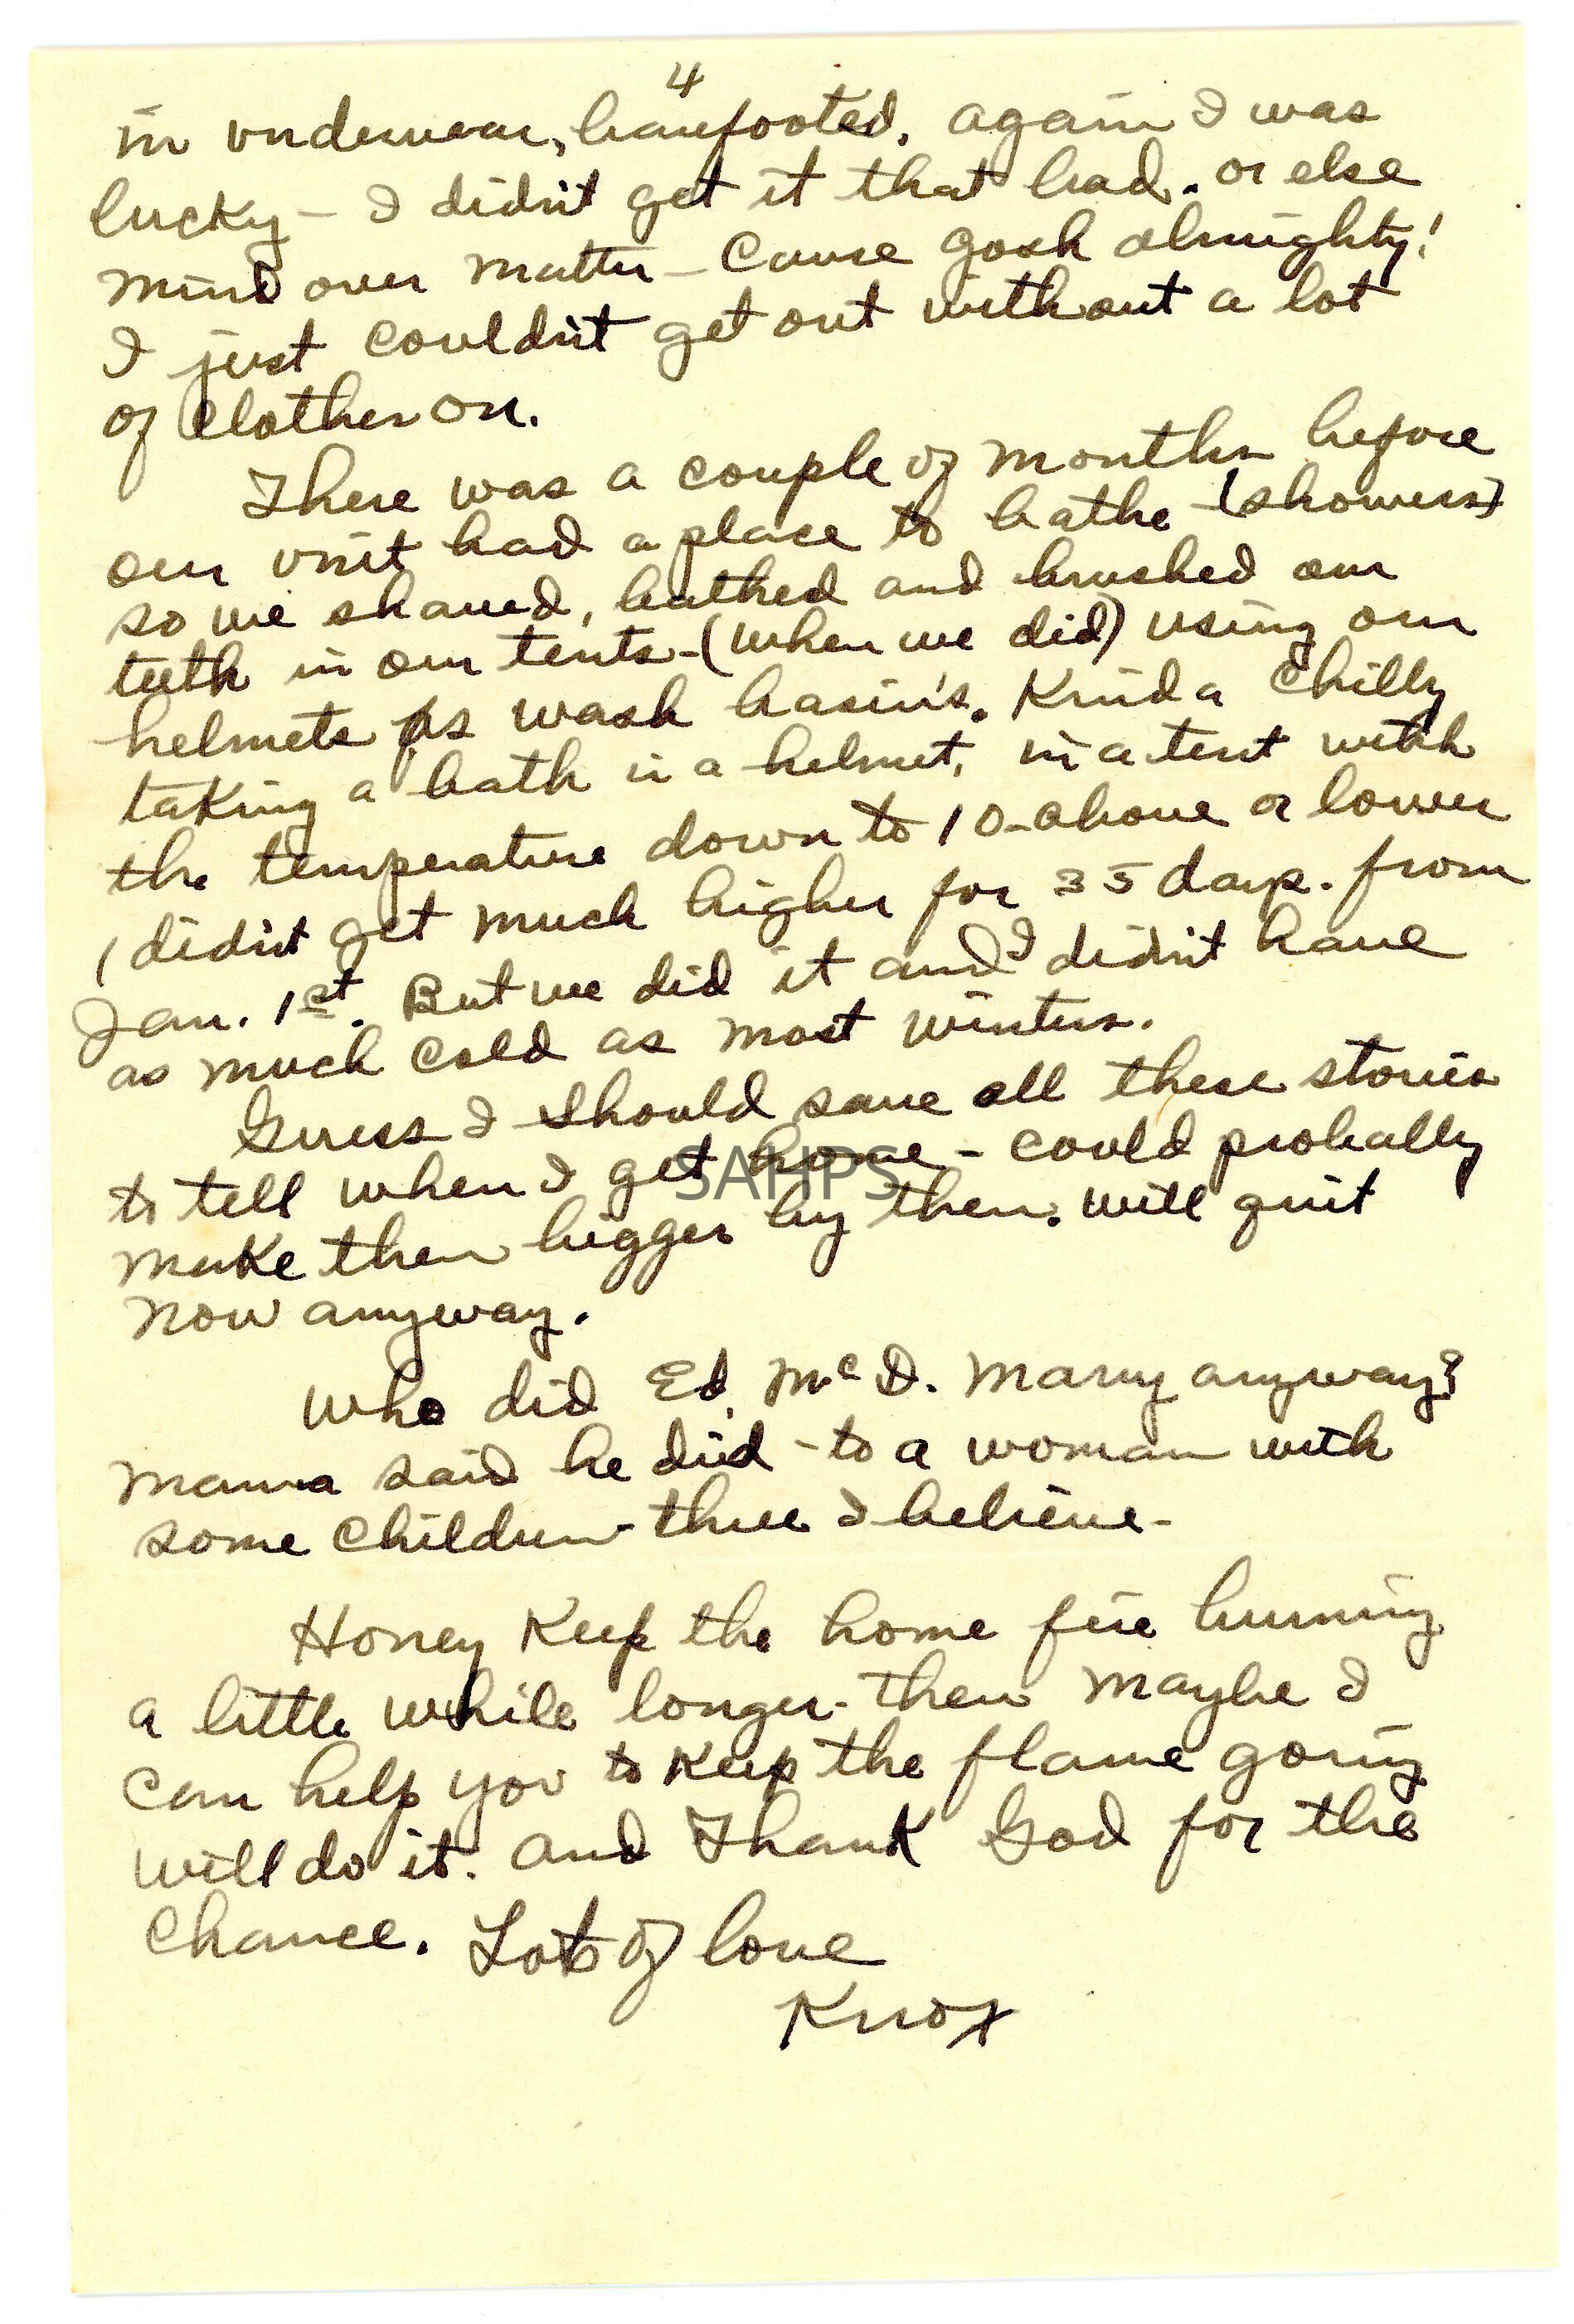 4
in underwear, barefooted. again I was
lucky – I didn't get it that bad. or else
mind over matter – Cause gosh almighty!
I just couldn't get out without a lot
of clothes on.
There was a couple of months before
our unit had a place to bathe (showers)
so we shaved, bathed and brushed our
teeth in our tents - (when we did) using our
helmets as wash basin's. Kinda chilly
taking a bath in a helmet, in a tent with
the temperature down to 10 above or lower
(didn't get much higher for 35 days. from
Jan. 1st. But we did it and I didn't have
as much cold as most winters.
Guess I should save all these stories
to tell when I get home - could probally
make them bigger by then. will quit
now anyway.
Who did Ed. McD. marry anyway?
mama said he did - to a woman with
some children - three I believe -
Honey Keep the home fire burning
a little while longer - then maybe I
can help you to keep the flame going
will do it. and Thank God for the
chance. Lots of love
Knox
SAHPS